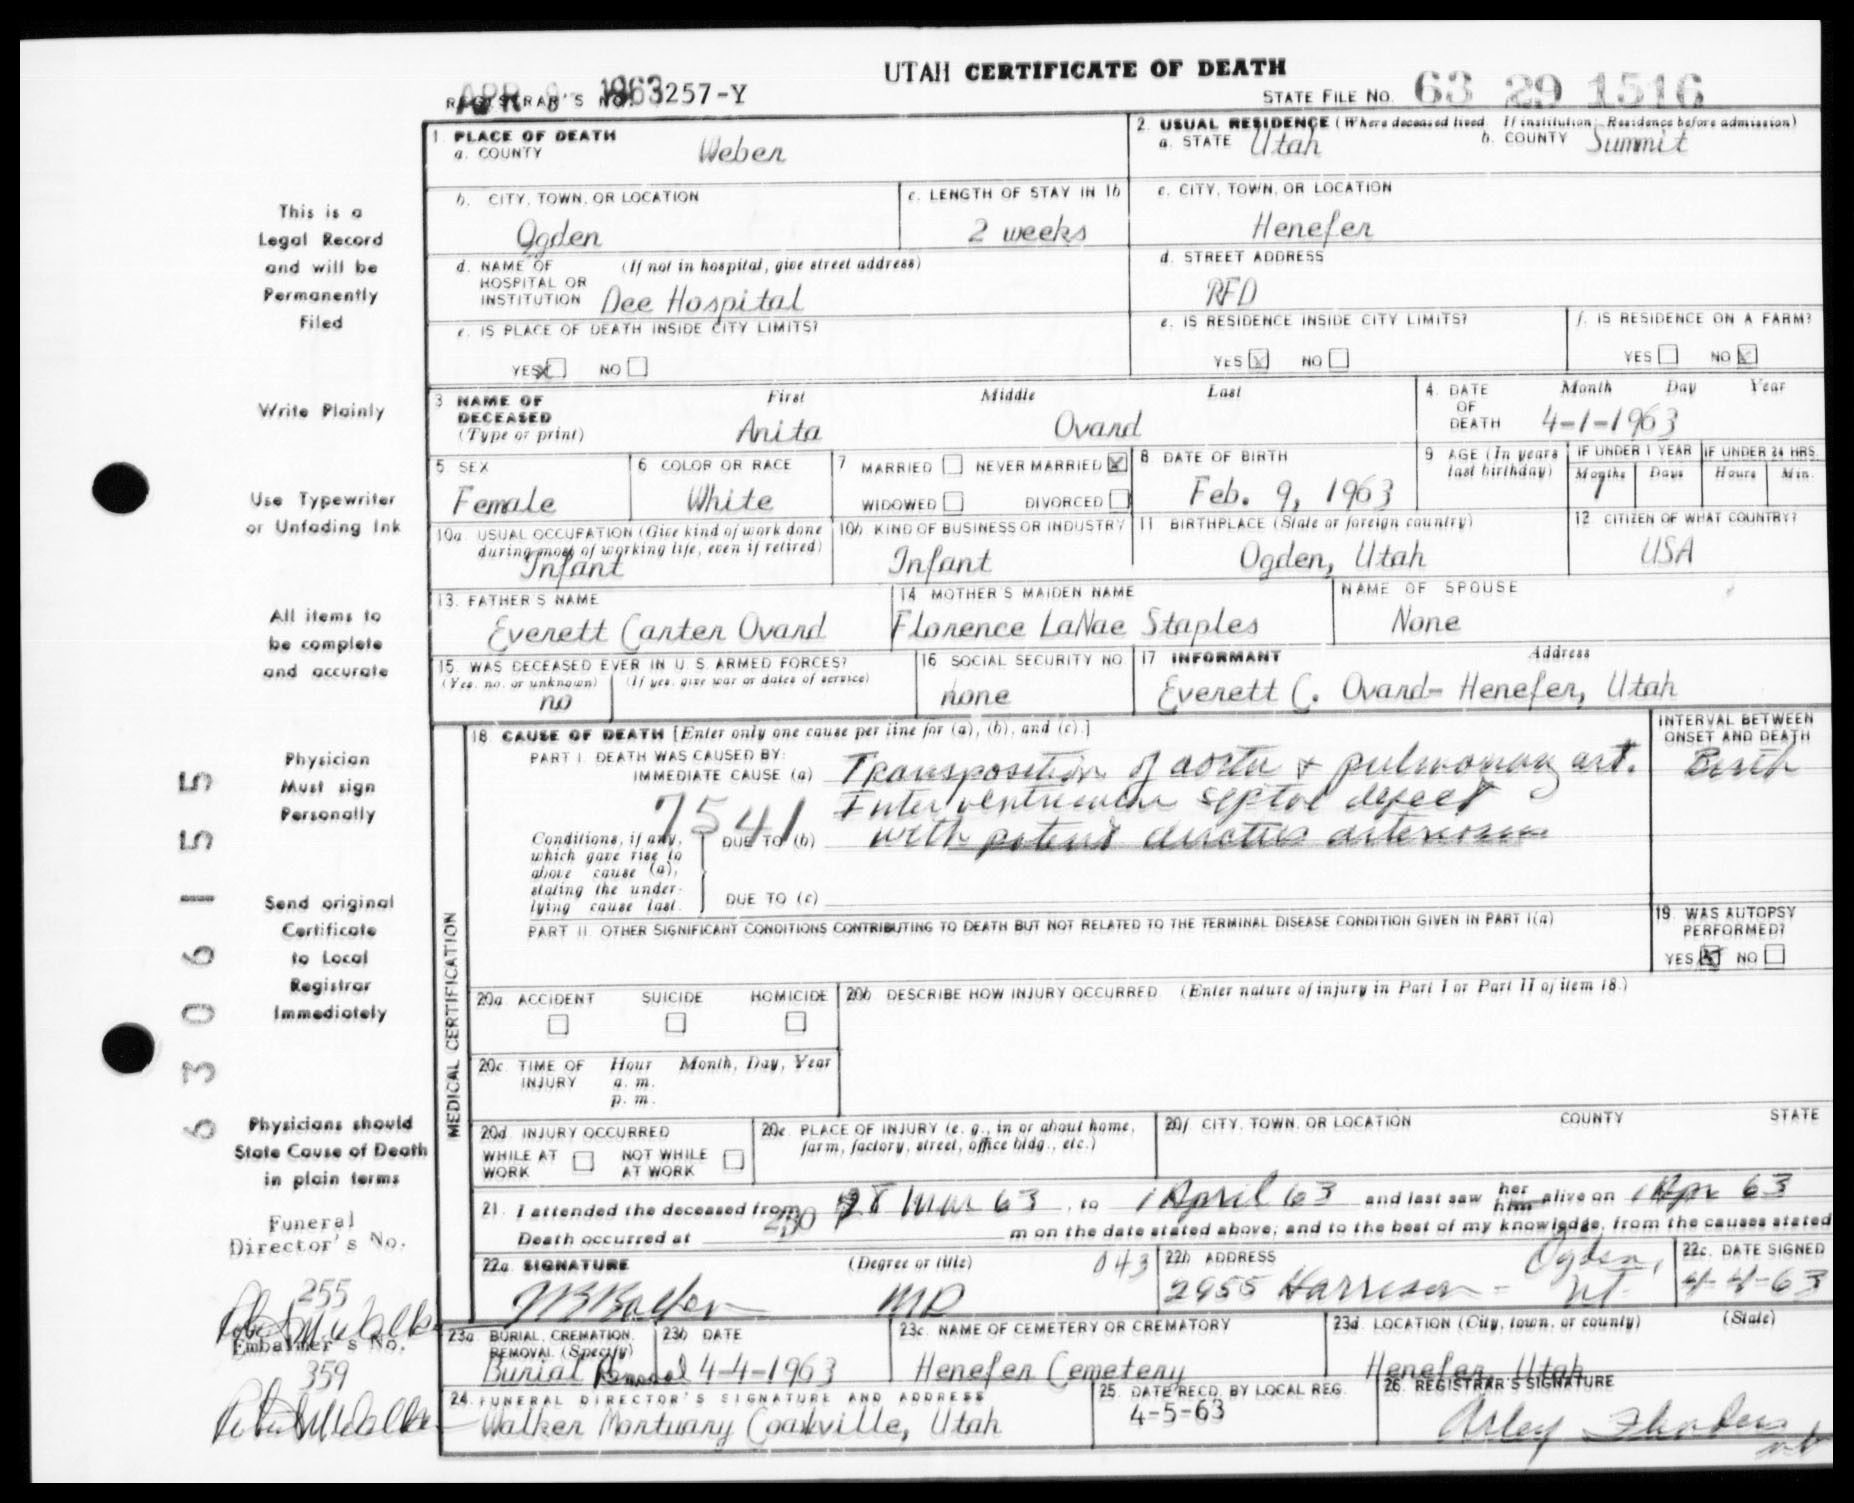 UTAH CERTIFICATE OF DEATH
APR 8 1963
REGISTRAR'S NO. 257-Y
STATE FILE NO. 63 29 1516
1. PLACE OF DEATH
a. COUNTY Weber
2. USUAL RESIDENCE (Where deceased lived. If institution: Residence before admission)
a. STATE Utah b. COUNTY Summit
b. CITY, TOWN, OR LOCATION Ogden
c. LENGTH OF STAY IN 1b 2 weeks
c. CITY, TOWN, OR LOCATION Henefer
d. NAME OF HOSPITAL OR INSTITUTION (If not in hospital, give street address) Dee Hospital
d. STREET ADDRESS RFD
e. IS PLACE OF DEATH INSIDE CITY LIMITS?
YES X NO
e. IS RESIDENCE INSIDE CITY LIMITS?
YES X NO
f. IS RESIDENCE ON A FARM?
YES NO X
3. NAME OF DECEASED (Type or print) First Middle Last
Anita Ovard
4. DATE OF DEATH Month Day Year
4-1-1963
5. SEX Female
6. COLOR OR RACE White
7. MARRIED NEVER MARRIED X
WIDOWED DIVORCED
8. DATE OF BIRTH Feb. 9, 1963
9. AGE (In years last birthday)
IF UNDER 1 YEAR Months 1 Days
IF UNDER 24 HRS. Hours Min.
10a. USUAL OCCUPATION (Give kind of work done during most of working life, even if retired) Infant
10b. KIND OF BUSINESS OR INDUSTRY Infant
11. BIRTHPLACE (State or foreign country) Ogden, Utah
12. CITIZEN OF WHAT COUNTRY? USA
13. FATHER'S NAME Everett Carter Ovard
14. MOTHER'S MAIDEN NAME Florence LaNae Staples
NAME OF SPOUSE None
15. WAS DECEASED EVER IN U.S. ARMED FORCES?
(Yes, no, or unknown) (If yes, give war or dates of service)
no
16. SOCIAL SECURITY NO. none
17. INFORMANT Address
Everett C. Ovard- Henefer, Utah
MEDICAL CERTIFICATION
18. CAUSE OF DEATH [Enter only one cause per line for (a), (b), and (c).]
INTERVAL BETWEEN ONSET AND DEATH
PART I. DEATH WAS CAUSED BY:
IMMEDIATE CAUSE (a) Transposition of aorta & pulmonary art. Birth
7541 Interventricular septal defect
Conditions, if any, which gave rise to above cause (a), stating the underlying cause last.
DUE TO (b) with patent ductus arteriosus
DUE TO (c)
PART II. OTHER SIGNIFICANT CONDITIONS CONTRIBUTING TO DEATH BUT NOT RELATED TO THE TERMINAL DISEASE CONDITION GIVEN IN PART I(a)
19. WAS AUTOPSY PERFORMED?
YES X NO
20a. ACCIDENT SUICIDE HOMICIDE
20b. DESCRIBE HOW INJURY OCCURRED. (Enter nature of injury in Part I or Part II of item 18.)
20c. TIME OF INJURY Hour Month, Day, Year
a. m.
p. m.
20d. INJURY OCCURRED
WHILE AT WORK NOT WHILE AT WORK
20e. PLACE OF INJURY (e. g., in or about home, farm, factory, street, office bldg., etc.)
20f. CITY, TOWN, OR LOCATION COUNTY STATE
21. I attended the deceased from 28 Mar 63, to 1 April 63 and last saw her him alive on 1 Apr 63
Death occurred at 230 m on the date stated above; and to the best of my knowledge, from the causes stated
22a. SIGNATURE (Degree or title) 043
MD
22b. ADDRESS 2955 Harrison - Ogden, Ut.
22c. DATE SIGNED 4-4-63
23a. BURIAL, CREMATION, REMOVAL (Specify) Burial Removal
23b. DATE 4-4-1963
23c. NAME OF CEMETERY OR CREMATORY Henefer Cemetery
23d. LOCATION (City, town, or county) (State) Henefer, Utah
24. FUNERAL DIRECTOR'S SIGNATURE AND ADDRESS
Walker Mortuary Coalville, Utah
25. DATE REC'D. BY LOCAL REG. 4-5-63
26. REGISTRAR'S SIGNATURE
This is a
Legal Record
and will be
Permanently
Filed
Write Plainly
Use Typewriter
or Unfading Ink
All items to
be complete
and accurate
Physician
Must sign
Personally
Send original
Certificate
to Local
Registrar
Immediately
Physicians should
State Cause of Death
in plain terms
Funeral
Director's No.
255
Embalmer's No.
359
6 3 0 6 1 5 5